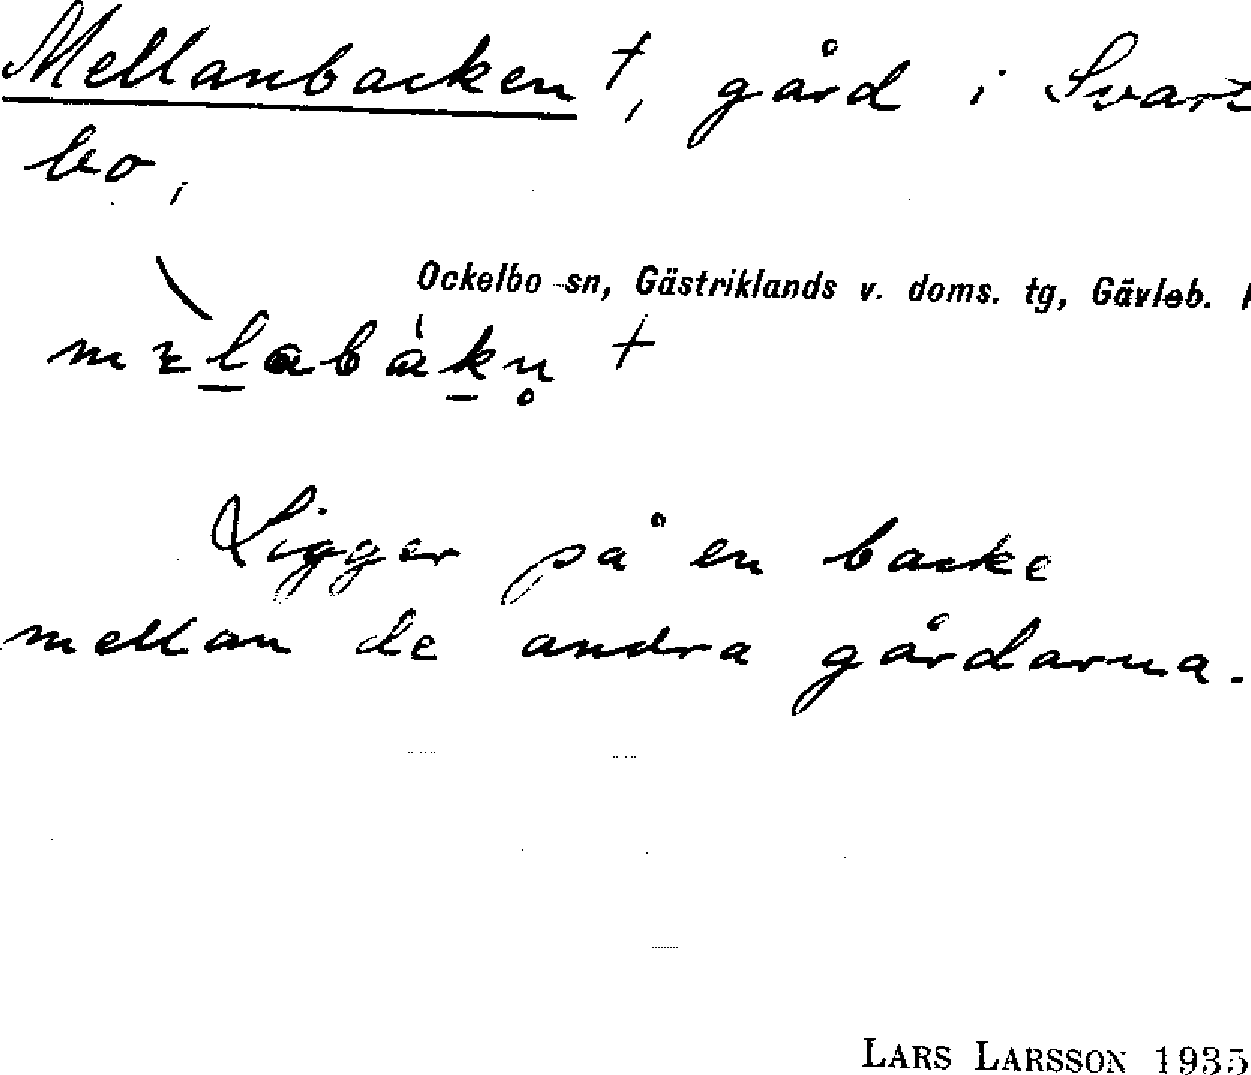 Mellanbacken +, gård i Svart
bo,
Ockelbo sn, Gästriklands v. doms. tg, Gävleb.
Ligger på en backe
mellan de andra gårdarna.
LARS LARSSON 1935